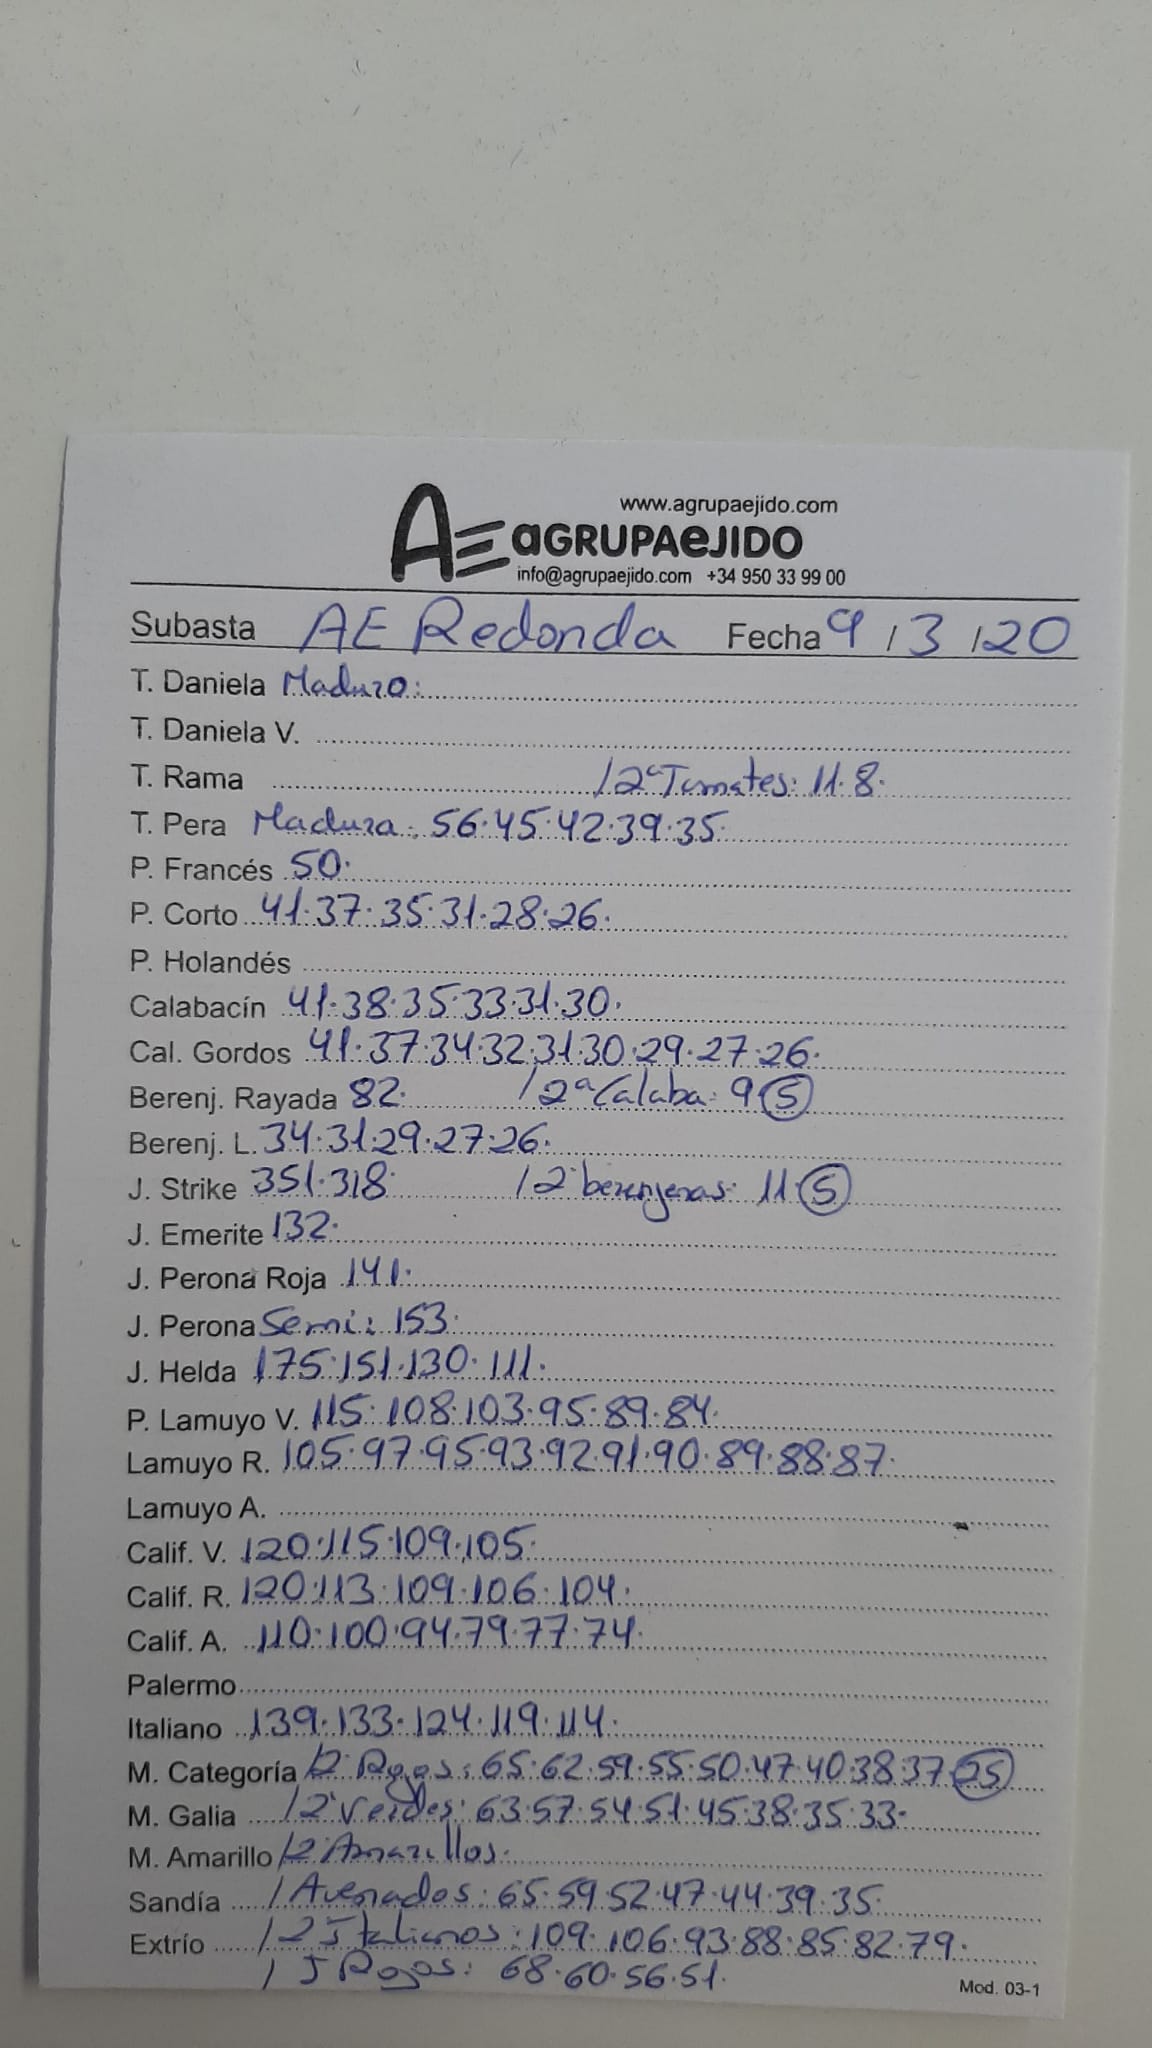 www.agrupaejido.com
AE aGRUPAeJIDO
info@agrupaejido.com +34 950 33 99 00
Subasta AE Redonda Fecha 9/3/20
T. Daniela Maduro:
T. Daniela V.
T. Rama /2ª Tomates: 11·8·
T. Pera Madura: 56·45·42·39·35·
P. Francés 50·
P. Corto 41·37·35·31·28·26·
P. Holandés
Calabacín 41·38·35·33·31·30·
Cal. Gordos 41·37·34·32·31·30·29·27·26·
Berenj. Rayada 82· /2ª Calaba: 9 (5)
Berenj. L. 34·31·29·27·26·
J. Strike 351·318· /2ª berenjenas: 11·(5)
J. Emerite 132·
J. Perona Roja 141·
J. Perona Semi: 153·
J. Helda 175·151·130·111·
P. Lamuyo V. 115·108·103·95·89·84·
Lamuyo R. 105·97·95·93·92·91·90·89·88·87·
Lamuyo A.
Calif. V. 120·115·109·105·
Calif. R. 120·113·109·106·104·
Calif. A. 110·100·94·79·77·74·
Palermo
Italiano 139·133·124·119·114·
M. Categoría /2ª Rojos: 65·62·59·55·50·47·40·38·37 (25)
M. Galia /2ª Verdes: 63·57·54·51·45·38·35·33·
M. Amarillo /2ª Amarillos·
Sandía / Avenados: 65·59·52·47·44·39·35·
Extrío /2 Italianos: 109·106·93·88·85·82·79·
/ I Rojos: 68·60·56·51·
Mod. 03-1